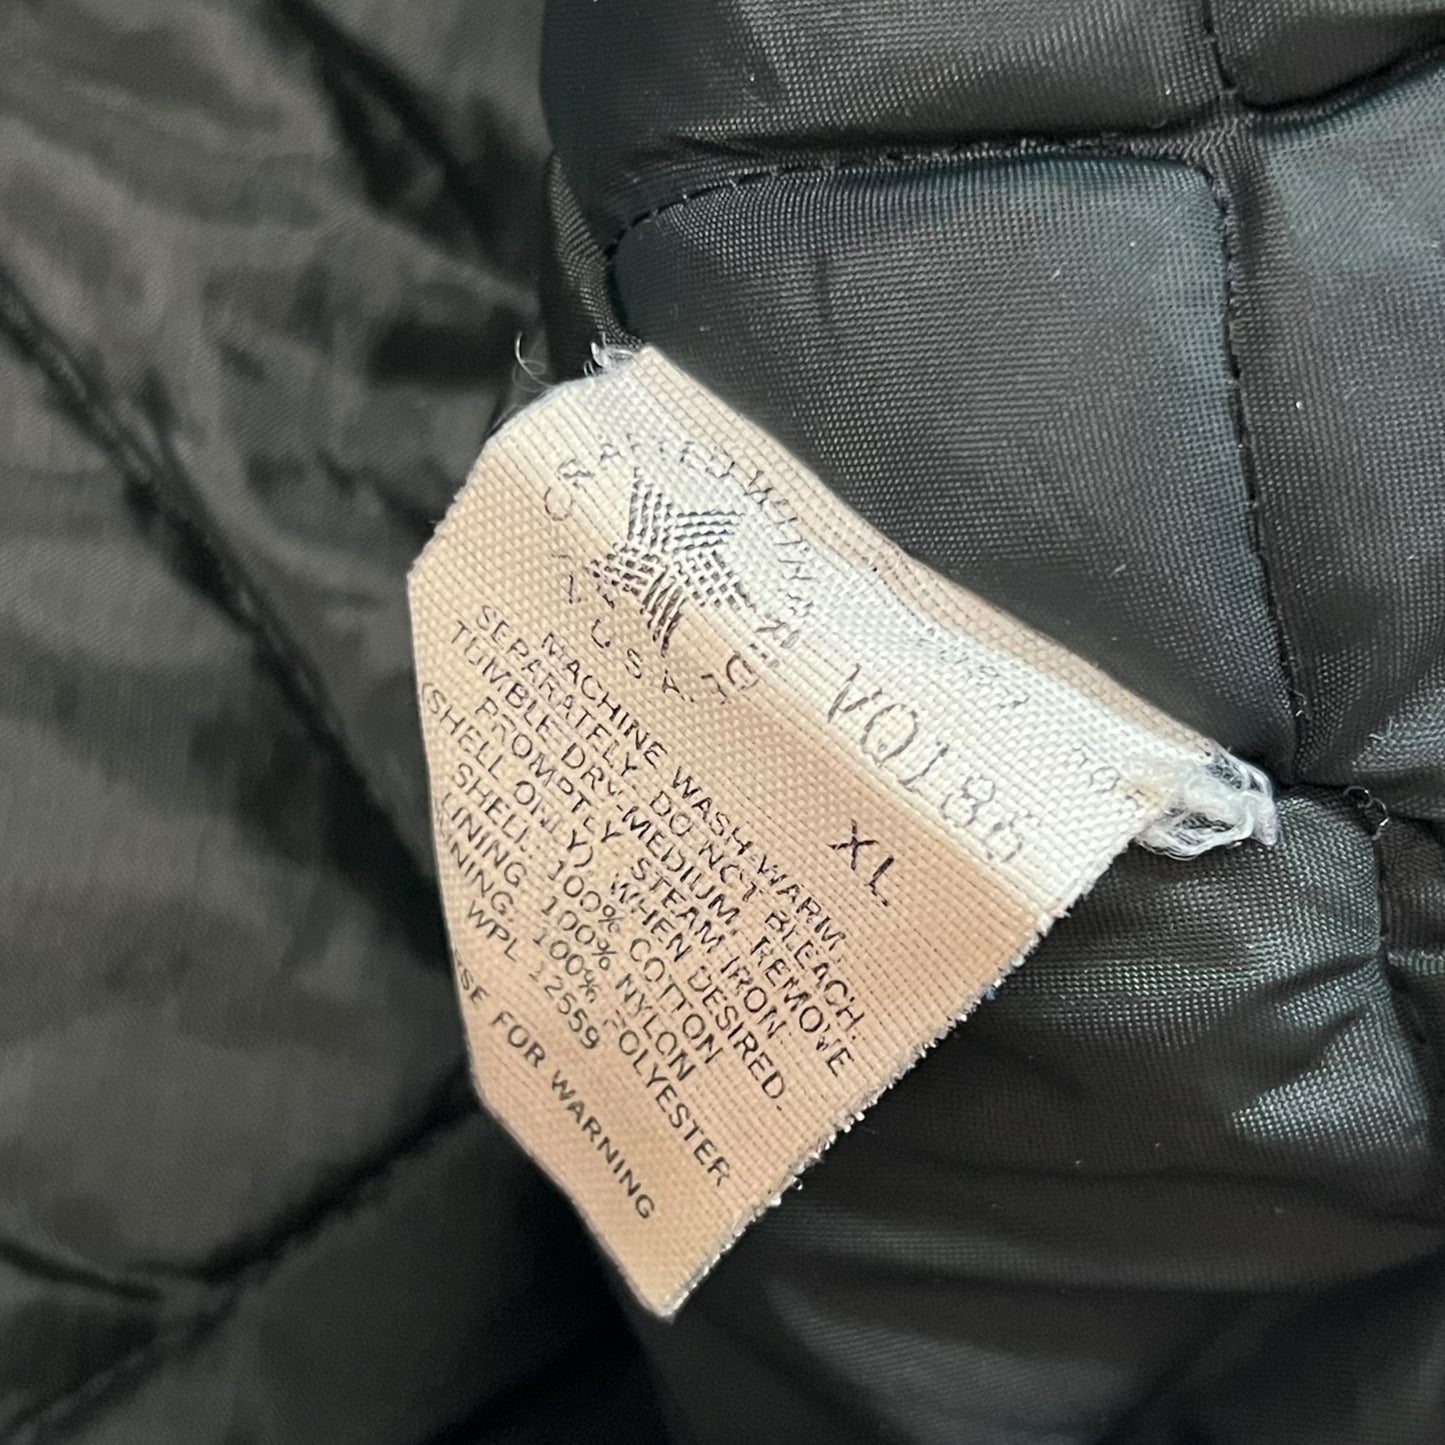 CRAFTED WITH PRIDE
IN U.S.A.
VO186
XL
MACHINE WASH WARM,
SEPARATELY. DO NOT BLEACH.
TUMBLE DRY-MEDIUM, REMOVE
PROMPTLY STEAM IRON
(SHELL ONLY) WHEN DESIRED.
SHELL 100% COTTON
LINING 100% NYLON
100% POLYESTER
WPL 12559
FOR WARNING